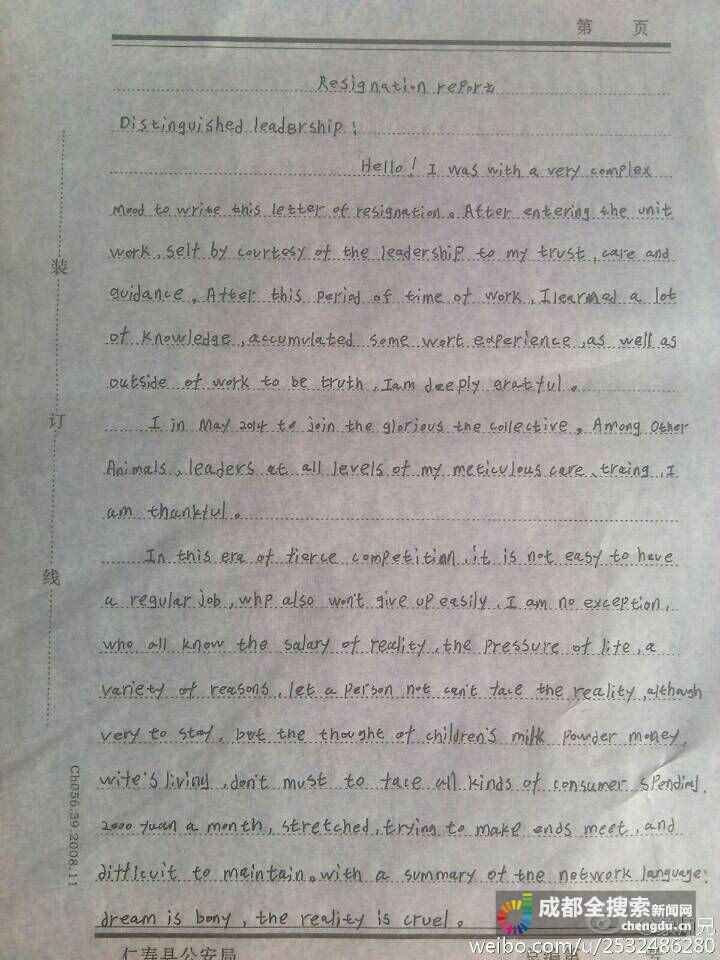 第 页
Resignation report
Distinguished leadership:
Hello! I was with a very complex
mood to write this letter of resignation. After entering the unit
work, self by courtesy of the leadership to my trust, care and
guidance, After this period of time of work, I learned a lot
of knowledge, accumulated some wort experience, as well as
outside of work to be truth, Iam deeply grateful.
I in May 2014 to join the glorious the collective. Among Other
Animals, leaders at all levels of my meticulous care, traing, I
am thankful.
In this era of fierce competition, it is not easy to have
a regular job, whp also won't give up easily, I am no exception,
who all know the salary of reality, the pressure of life, a
variety of reasons, let a person not can't face the reality, although
very to stay, but the thought of children's milk powder money,
wife's living, don't must to face all kinds of consumer spending,
2000 yuan a month, stretched, trying to make ends meet, and
difficuit to maintain. with a summary of the network language:
dream is bony, the reality is cruel.
装
订
线
Ch056.39 2008.11
仁寿县公安局
成都全搜索新闻网
chengdu.cn
weibo.com/u/2532486280